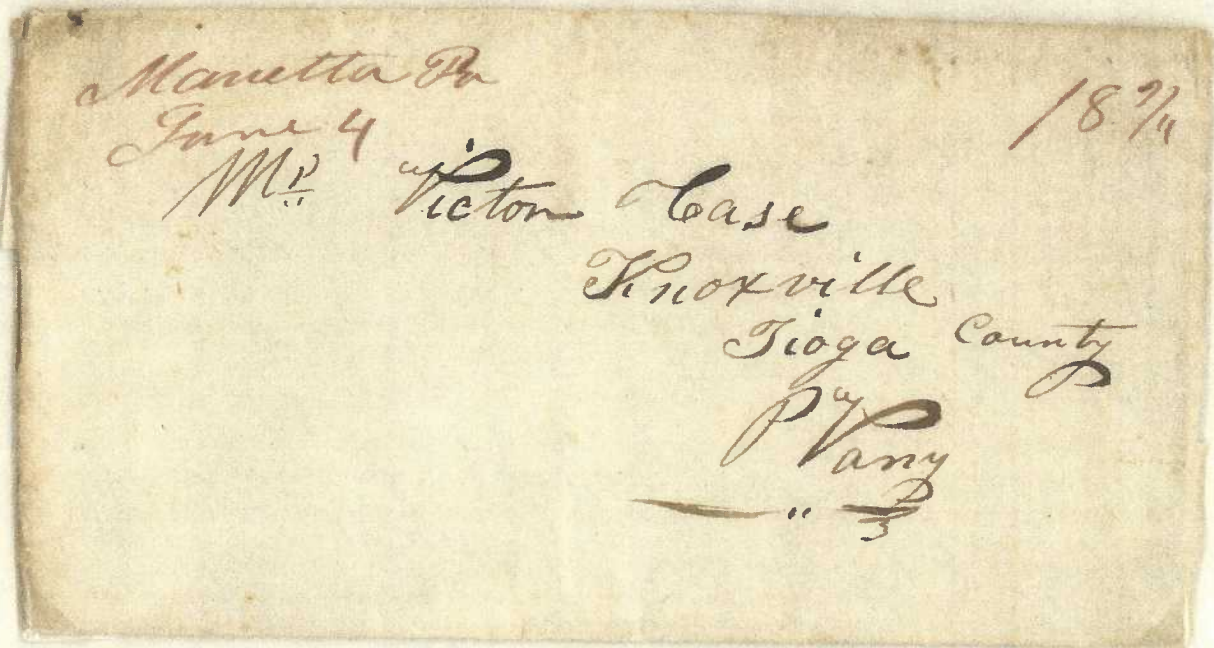 Marietta Pa
June 4
18 3/4
Mr. Victor Case
Knoxville
Tioga County
P Vany